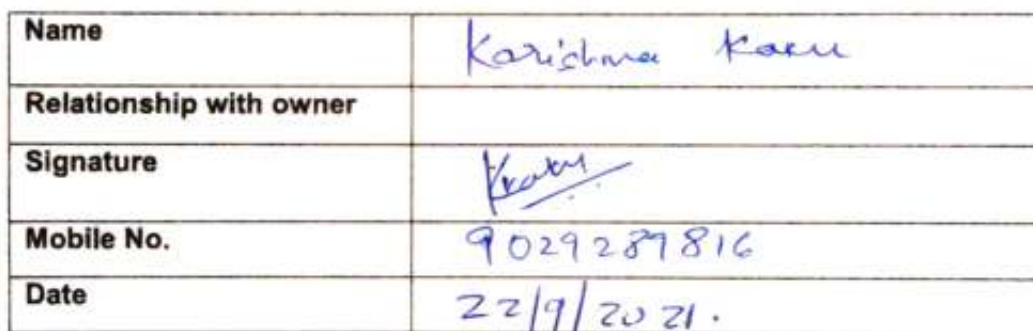 Name Karishma Karu
Relationship with owner
Signature
Mobile No. 9029289816
Date 22/9/2021.